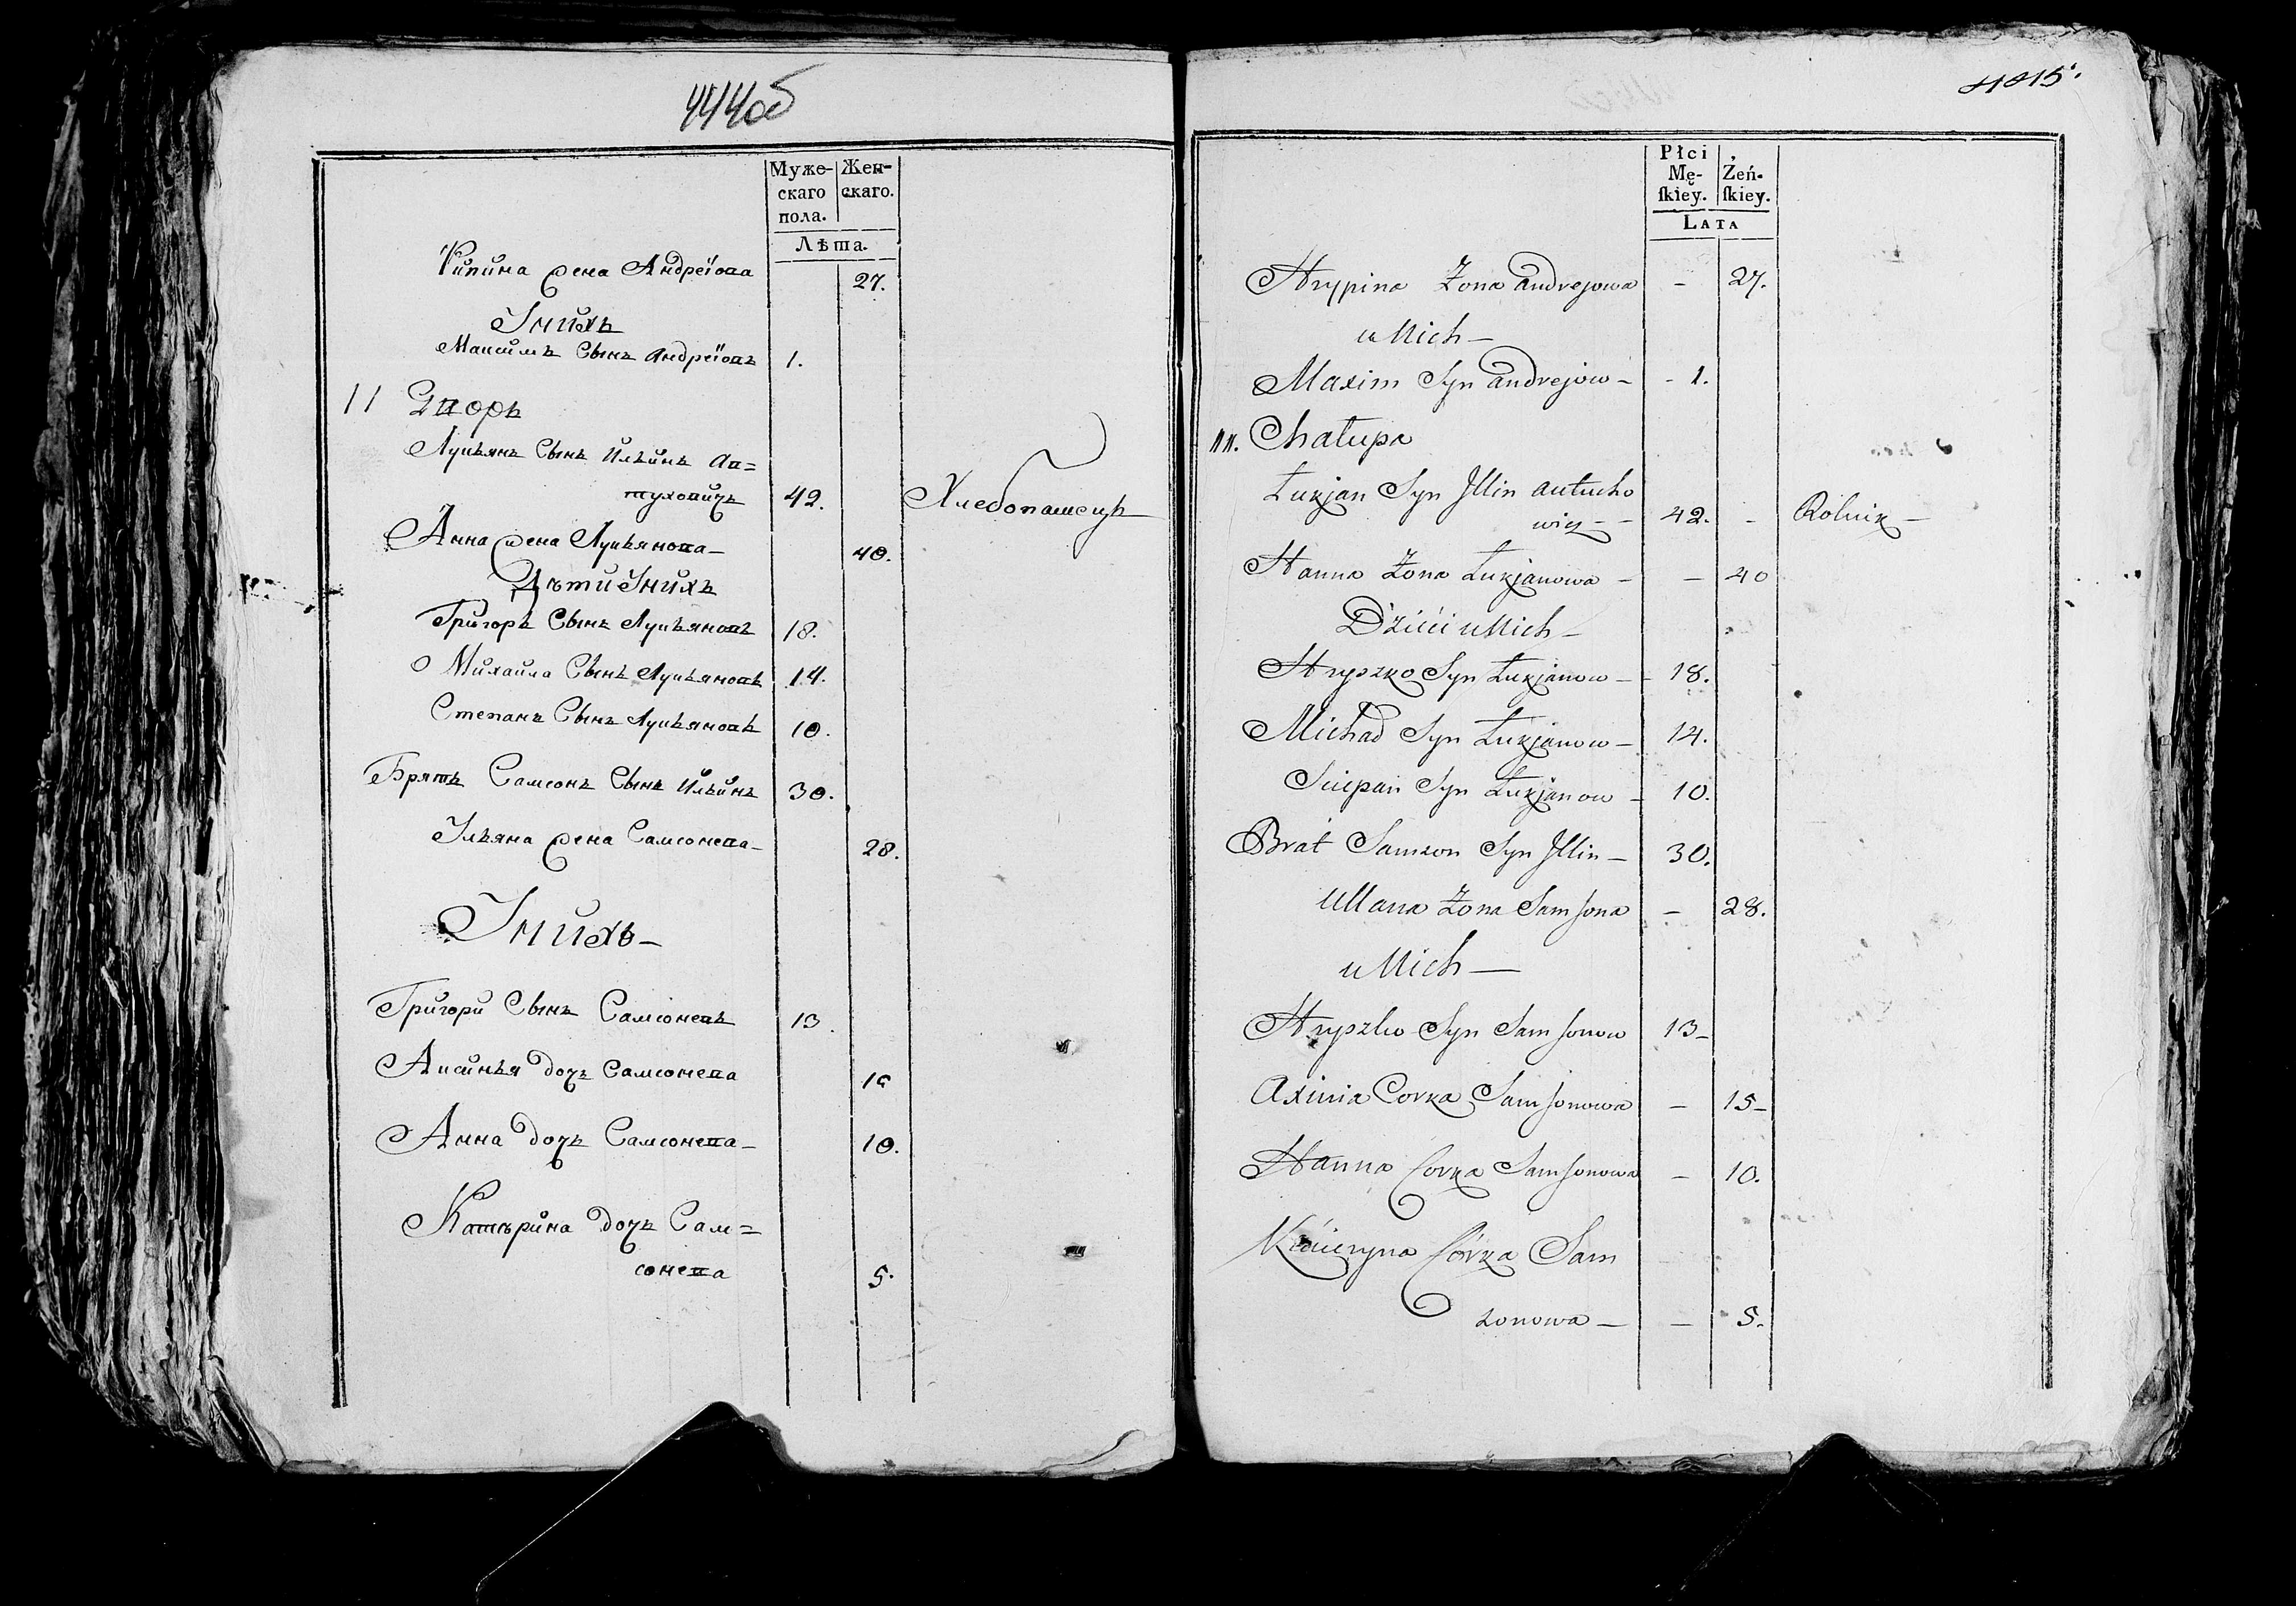 444об
Муже-
скаго
пола.
Жен-
скаго.
Лѣта.
жена Андреiова
27.
Iнихъ
Максимъ Сынъ Андреiовъ
1.
11 Дворъ
Лукьянъ Сынъ Ильинъ Ав=
туховичъ
42.
Хлебопашецъ
Анна жена Лукьянова-
40.
Дѣти Iнихъ
Григоръ Сынъ Лукьяновъ
18.
Михаила Сынъ Лукьяновъ
14.
Степанъ Сынъ Лукьяновъ
10.
Братъ Самсонъ Сынъ Ильинъ
30.
Iльяна жена Самсонева-
28.
Iнихъ-
Григори Сынъ Самсоневъ
13.
Аксинья дочъ Самсонева
Анна дочъ Самсонева-
10.
Катѣрина дочъ Сам=
сонева
5.
Płci
Mę-
ſkiey.
Żeń-
ſkiey.
LATA
Hrypina Żona andrejowa - 27.
u Nich-
Maxim Syn andrejow- - 1.
11. Chałupa
Łukjan Syn Jllin autucho
wicz-- 42. - Rolnik-
Hanna Żona Łukjanowa - - 40
Dzieci u Nich-
Hryszko Syn Łukjanow- 18.
Michał Syn Łukjanow- 14.
Sciepan Syn Łukjanow - 10.
Brat Samson Syn Jllin- 30.
Ullana Żona Samsona - 28.
u Nich-
Hryszko Syn Samsonow 13-
Axinia Corka Samsonowa - 15-
Hanna Corka Samsonowa - 10.
Córka Sam
zonowa- - 5.